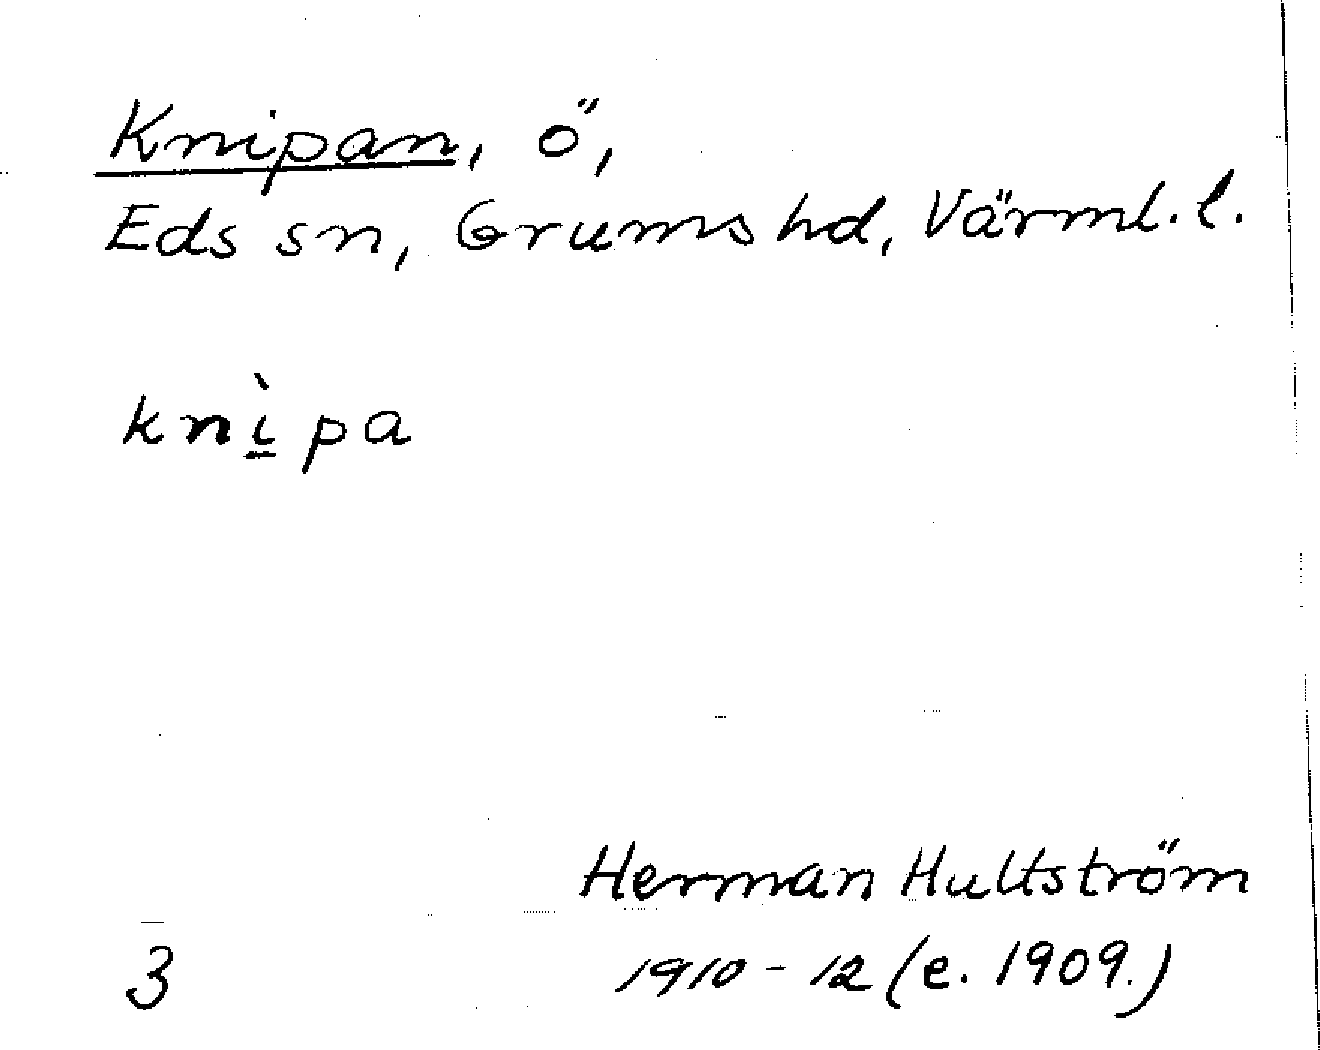 Knipan, ö,
Eds sn, Grums hd, Värml. l.
knì̱pa
Herman Hultström
3
1910-12 (e. 1909.)